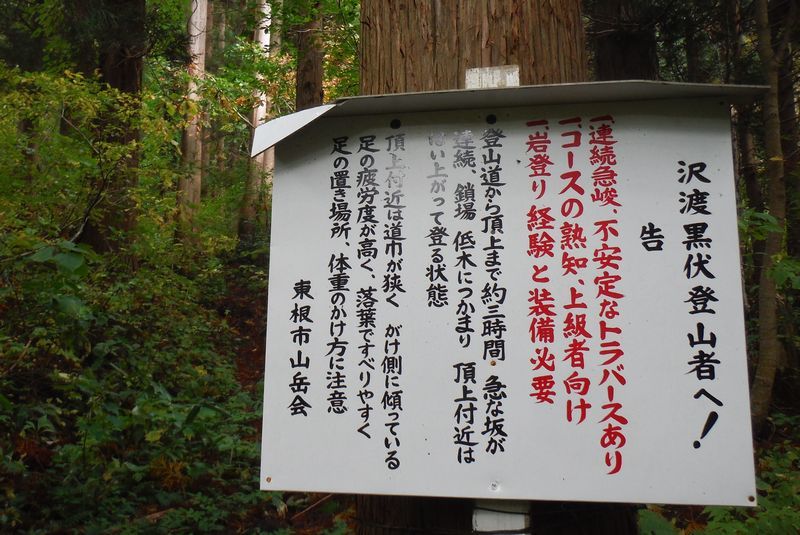 沢渡黒伏登山者へ!
告
一、連続急峻、不安定なトラバースあり
一、コースの熟知、上級者向け
一、岩登り経験と装備必要
登山道から頂上まで約三時間・急な坂が
連続、鎖場 低木につかまり 頂上付近は
這い上がって登る状態
頂上付近は道巾が狭く がけ側に傾っている
足の疲労度が高く、落葉ですべりやすく
足の置き場所、体重のかけ方に注意
東根市山岳会